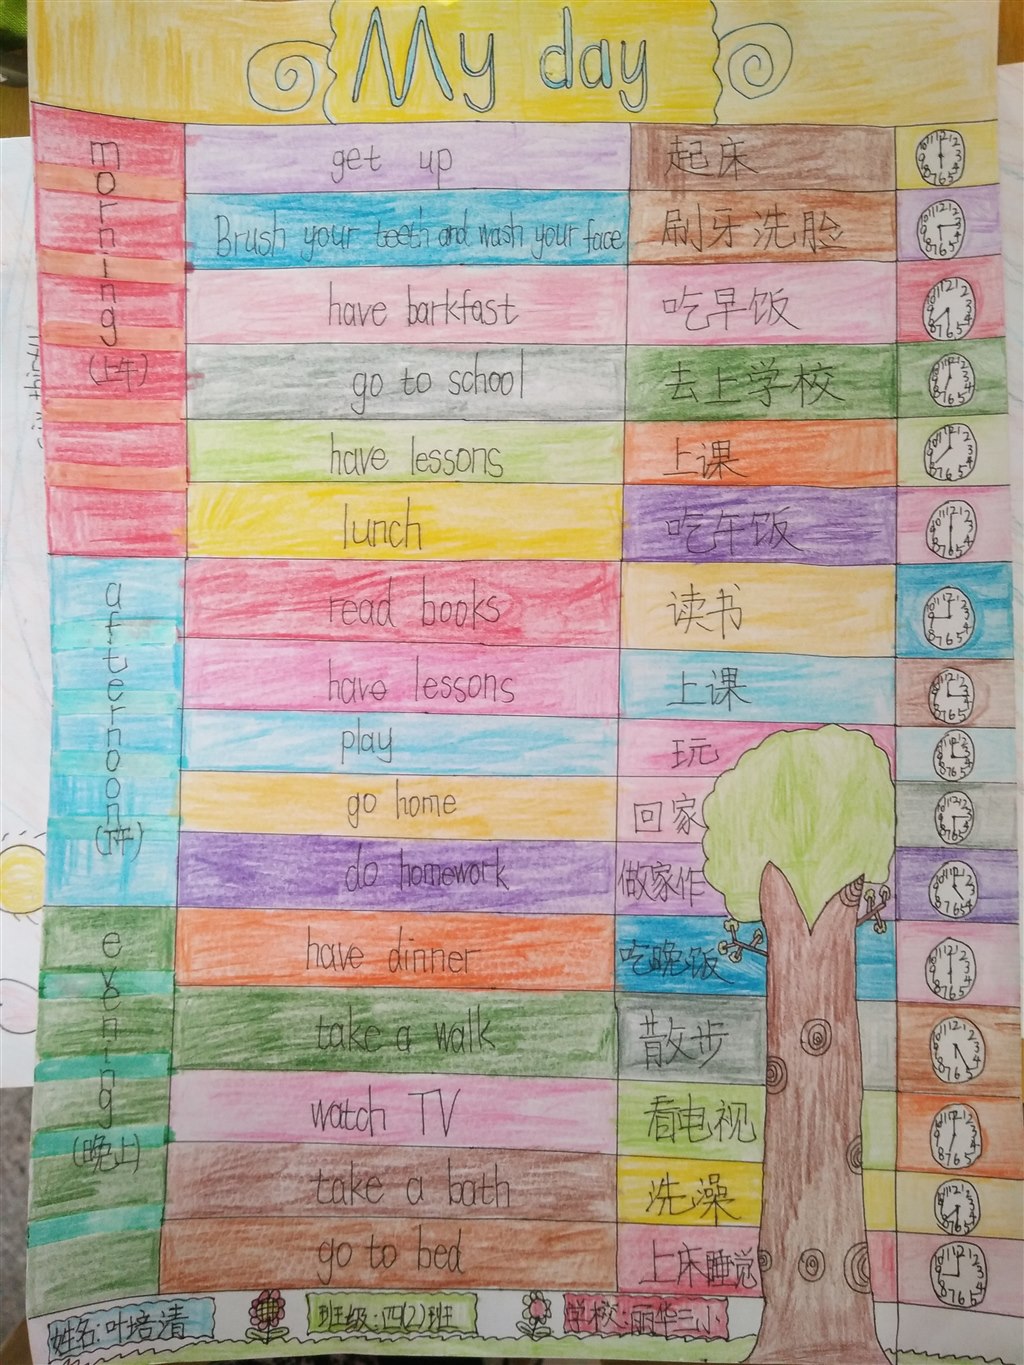 My day
morning
(上午)
get up 起床
Brush your teeth and wash your face 刷牙洗脸
have barkfast 吃早饭
go to school 去上学校
have lessons 上课
lunch 吃午饭
afternoon
(下午)
read books 读书
have lessons 上课
play 玩
go home 回家
do homework 做家作
evening
(晚上)
have dinner 吃晚饭
take a walk 散步
watch TV 看电视
take a bath 洗澡
go to bed 上床睡觉
姓名:叶培清 班级:四(2)班 学校:丽华三小